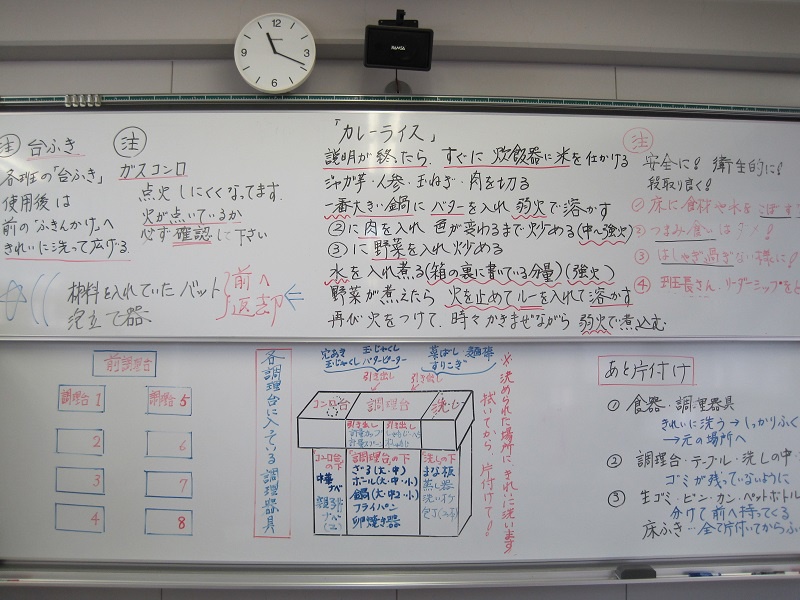 12
3
6
9
注 台ふき
各班の「台ふき」
使用後は
前の「ふきんかけ」へ
きれいに洗って広げる.
注
ガスコンロ
点火しにくくなってます.
火が点いているか
必ず確認して下さい
材料を入れていたバット
泡立て器
前へ
返却
「カレーライス」
説明が終ったら、すぐに 炊飯器に米を仕かける
ジャガ芋・人参・玉ねぎ・肉を切る
一番大きい鍋に バターを入れ 弱火で溶かす
②に肉を入れ 色が変わるまで炒める(中〜強火)
③に野菜を入れ炒める
水を入れ煮る(箱の裏に書いている分量)(強火)
野菜が煮えたら 火を止めてルーを入れて溶かす
再び火をつけて、時々かきまぜながら 弱火で煮込む
注
安全に! 衛生的に!
段取り良く!
① 床に食材や水をこぼす
② つまみ食いはダメ!
③ はしゃぎ過ぎない様に!
④ 班長さん、リーダーシップを
調理台1
調理台5
2
6
3
7
4
8
各調理台に入ている調理器具
穴あき
玉じゃくし
玉じゃくし
バタービーター
菜ばし・麺棒
すりこぎ
引き出し
引き出し
コンロ台
調理台
洗し
引き出し
引き出し
コンロ台の下
中華ナベ
「調理台」の下
ざる(大・中)
ボール(大・中・小)
鍋(大・中2・小)
フライパン
卵焼き器
洗しの下
まな板
蒸し器
洗い桶
※決められた場所に、きれいに洗います
拭いてから、片付けて!
あと片付け
① 食器・調理器具
きれいに洗う→しっかりふく
→元の場所へ
② 調理台・テーブル・洗しの中・
ゴミが残っていないように
③ 生ゴミ・ビン・カン・ペットボトル
分けて前へ持ってくる
床ふき…全て片付いてからふ